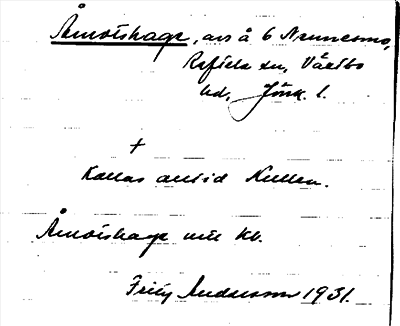 Åmotshage, avs å 6 Nennesmo,
Reftele sn, Västbo
hd, Jönk. l.
+
Kallas alltid Kullen.
Åmotshage rill kb.
Fritz Andersson 1931.